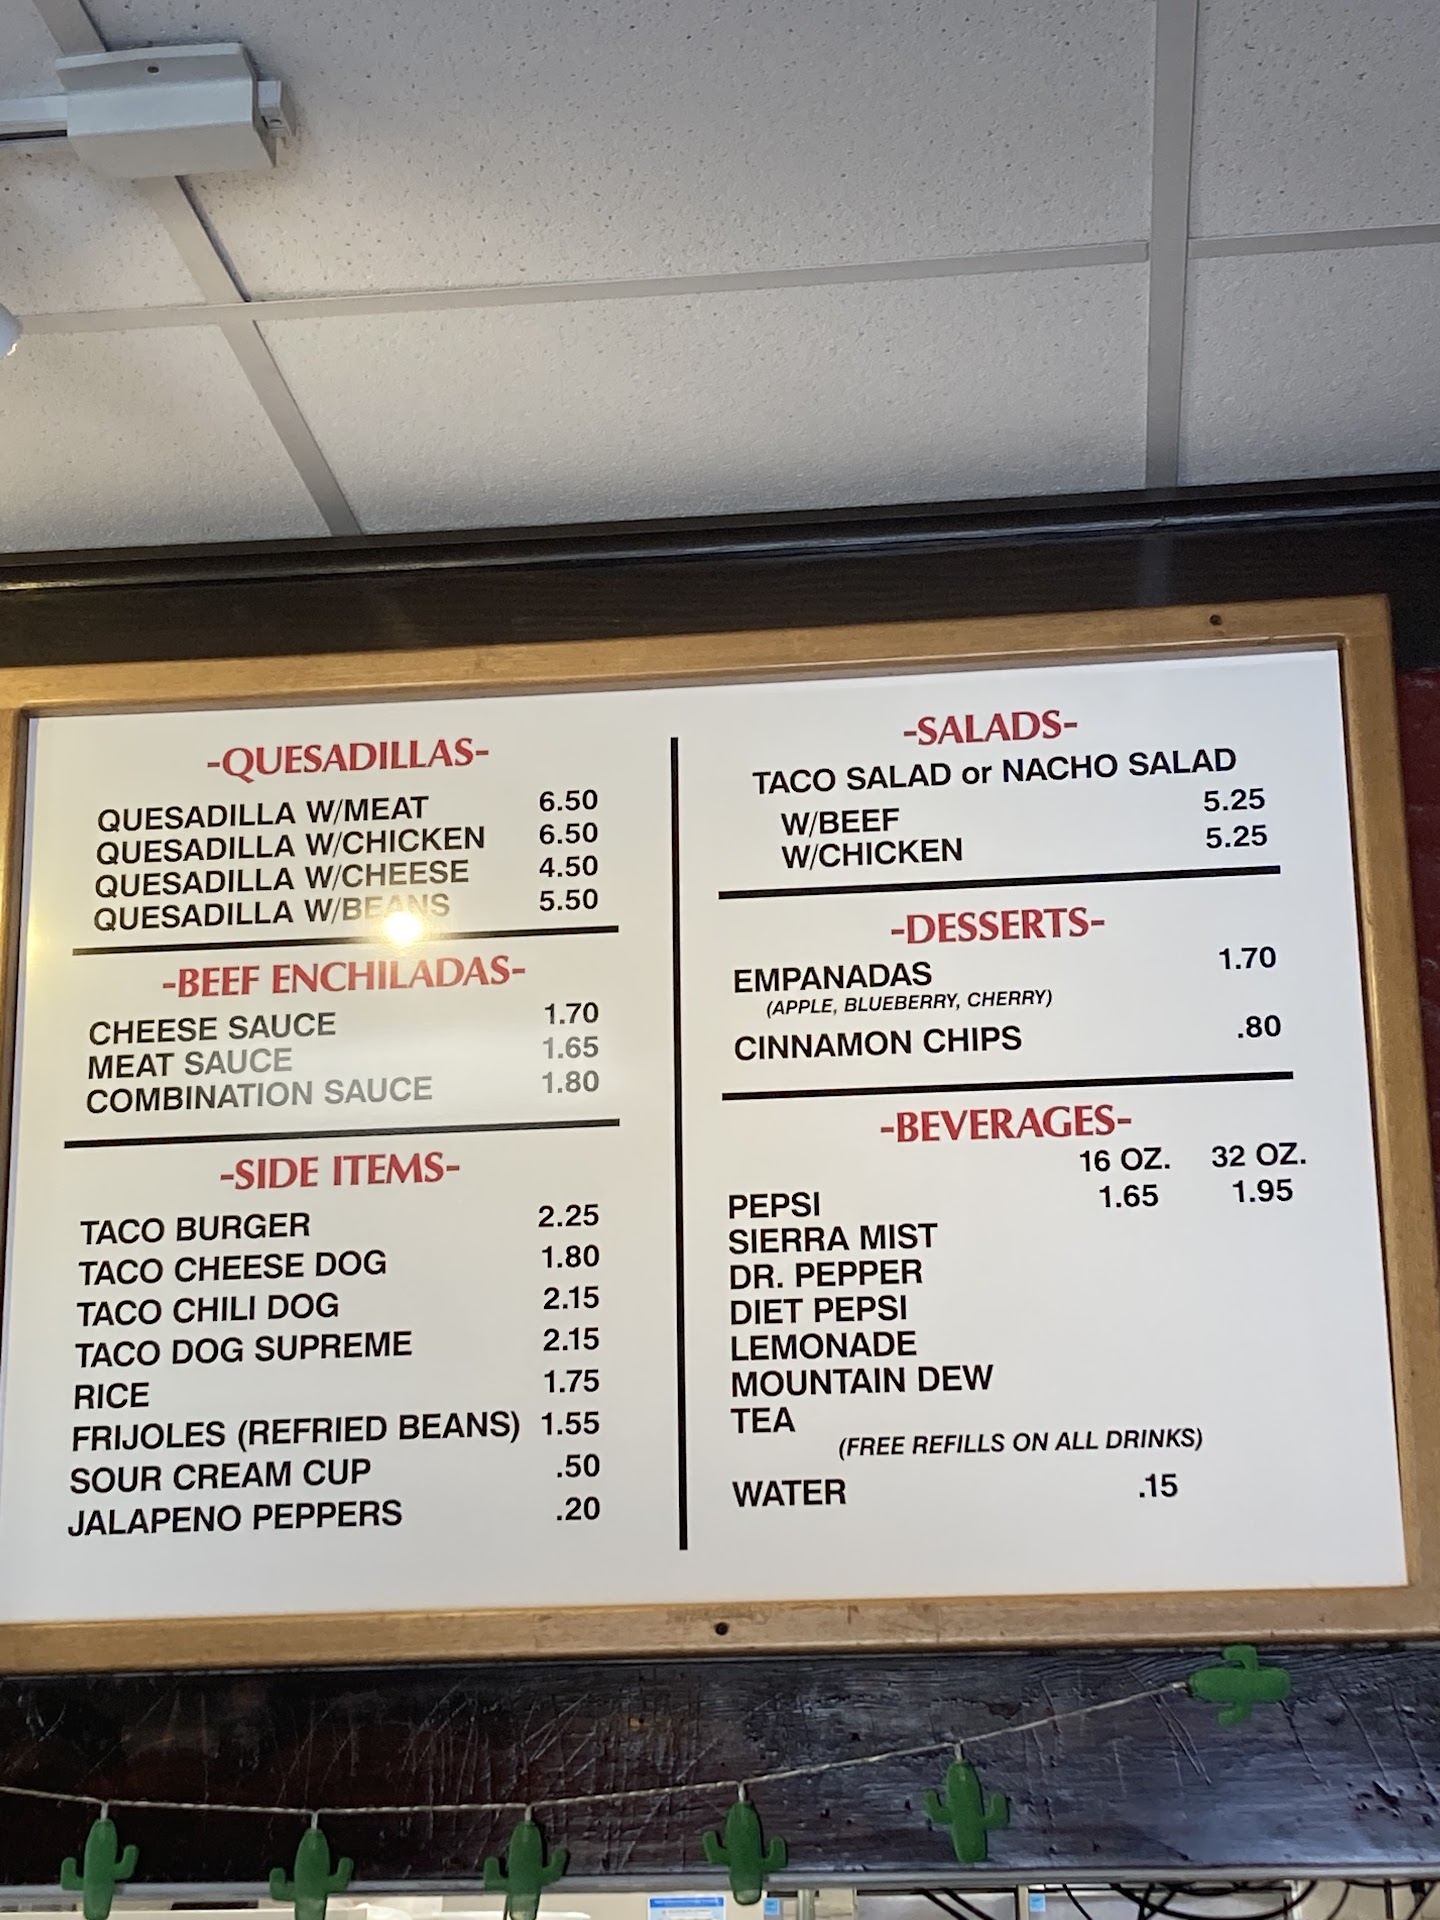 -QUESADILLAS-
QUESADILLA W/MEAT 6.50
QUESADILLA W/CHICKEN 6.50
QUESADILLA W/CHEESE 4.50
QUESADILLA W/BEANS 5.50
-BEEF ENCHILADAS-
CHEESE SAUCE 1.70
MEAT SAUCE 1.65
COMBINATION SAUCE 1.80
-SIDE ITEMS-
TACO BURGER 2.25
TACO CHEESE DOG 1.80
TACO CHILI DOG 2.15
TACO DOG SUPREME 2.15
RICE 1.75
FRIJOLES (REFRIED BEANS) 1.55
SOUR CREAM CUP .50
JALAPENO PEPPERS .20
-SALADS-
TACO SALAD or NACHO SALAD
W/BEEF 5.25
W/CHICKEN 5.25
-DESSERTS-
EMPANADAS 1.70
(APPLE, BLUEBERRY, CHERRY)
CINNAMON CHIPS .80
-BEVERAGES-
16 OZ. 32 OZ.
PEPSI 1.65 1.95
SIERRA MIST
DR. PEPPER
DIET PEPSI
LEMONADE
MOUNTAIN DEW
TEA
(FREE REFILLS ON ALL DRINKS)
WATER .15